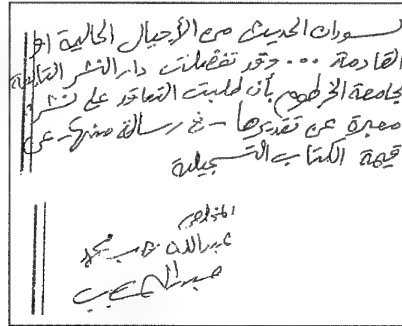 السودان الحديث من الأجيال الحالية او
القادمة ... وقد تفضلت دار النشر التابعة
لجامعة الخرطوم بأن طلبت التعاقد على نشره
معبرة عن تقديرها - في رسالة منها - عن
قيمة الكتاب التسجيلية
المخلص
عبدالله رجب محمد